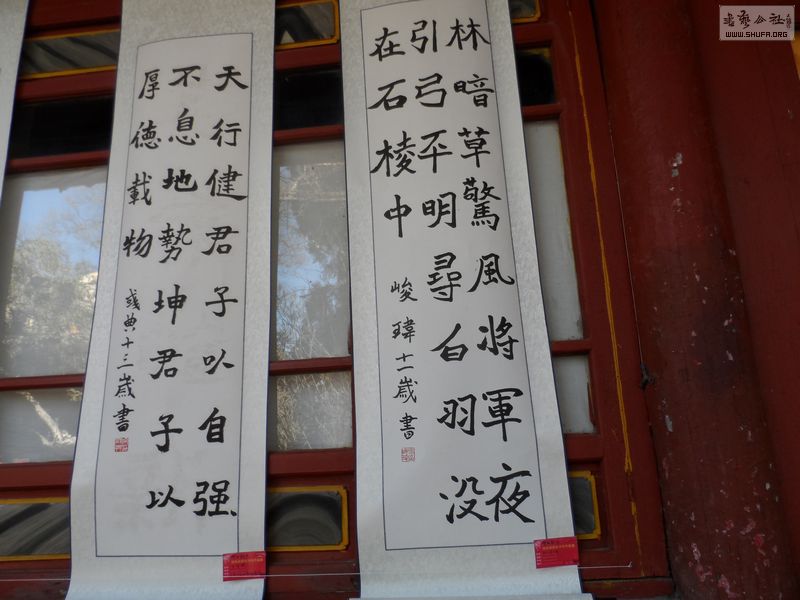 林暗草驚風將軍夜
引弓平明尋白羽没
在石棱中
峻瑋十一歲書
天行健君子以自强
不息地勢坤君子以
厚德載物
彧典十三歲書
書藝公社
WWW.SHUFA.ORG